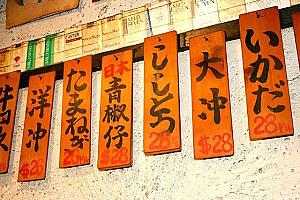 洋冲
$28
たまねぎ
日本
青椒仔
$28
ししとう
$28
大冲
$28
いかだ